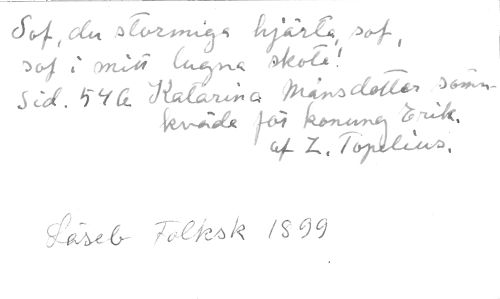 Sof, du stormiga hjärta, sof,
sof i mitt lugna sköte!
Sid. 546 Katarina Månsdotter sömn-
kväde för konung Erik.
af Z. Topelius.
Läseb Folksk 1899